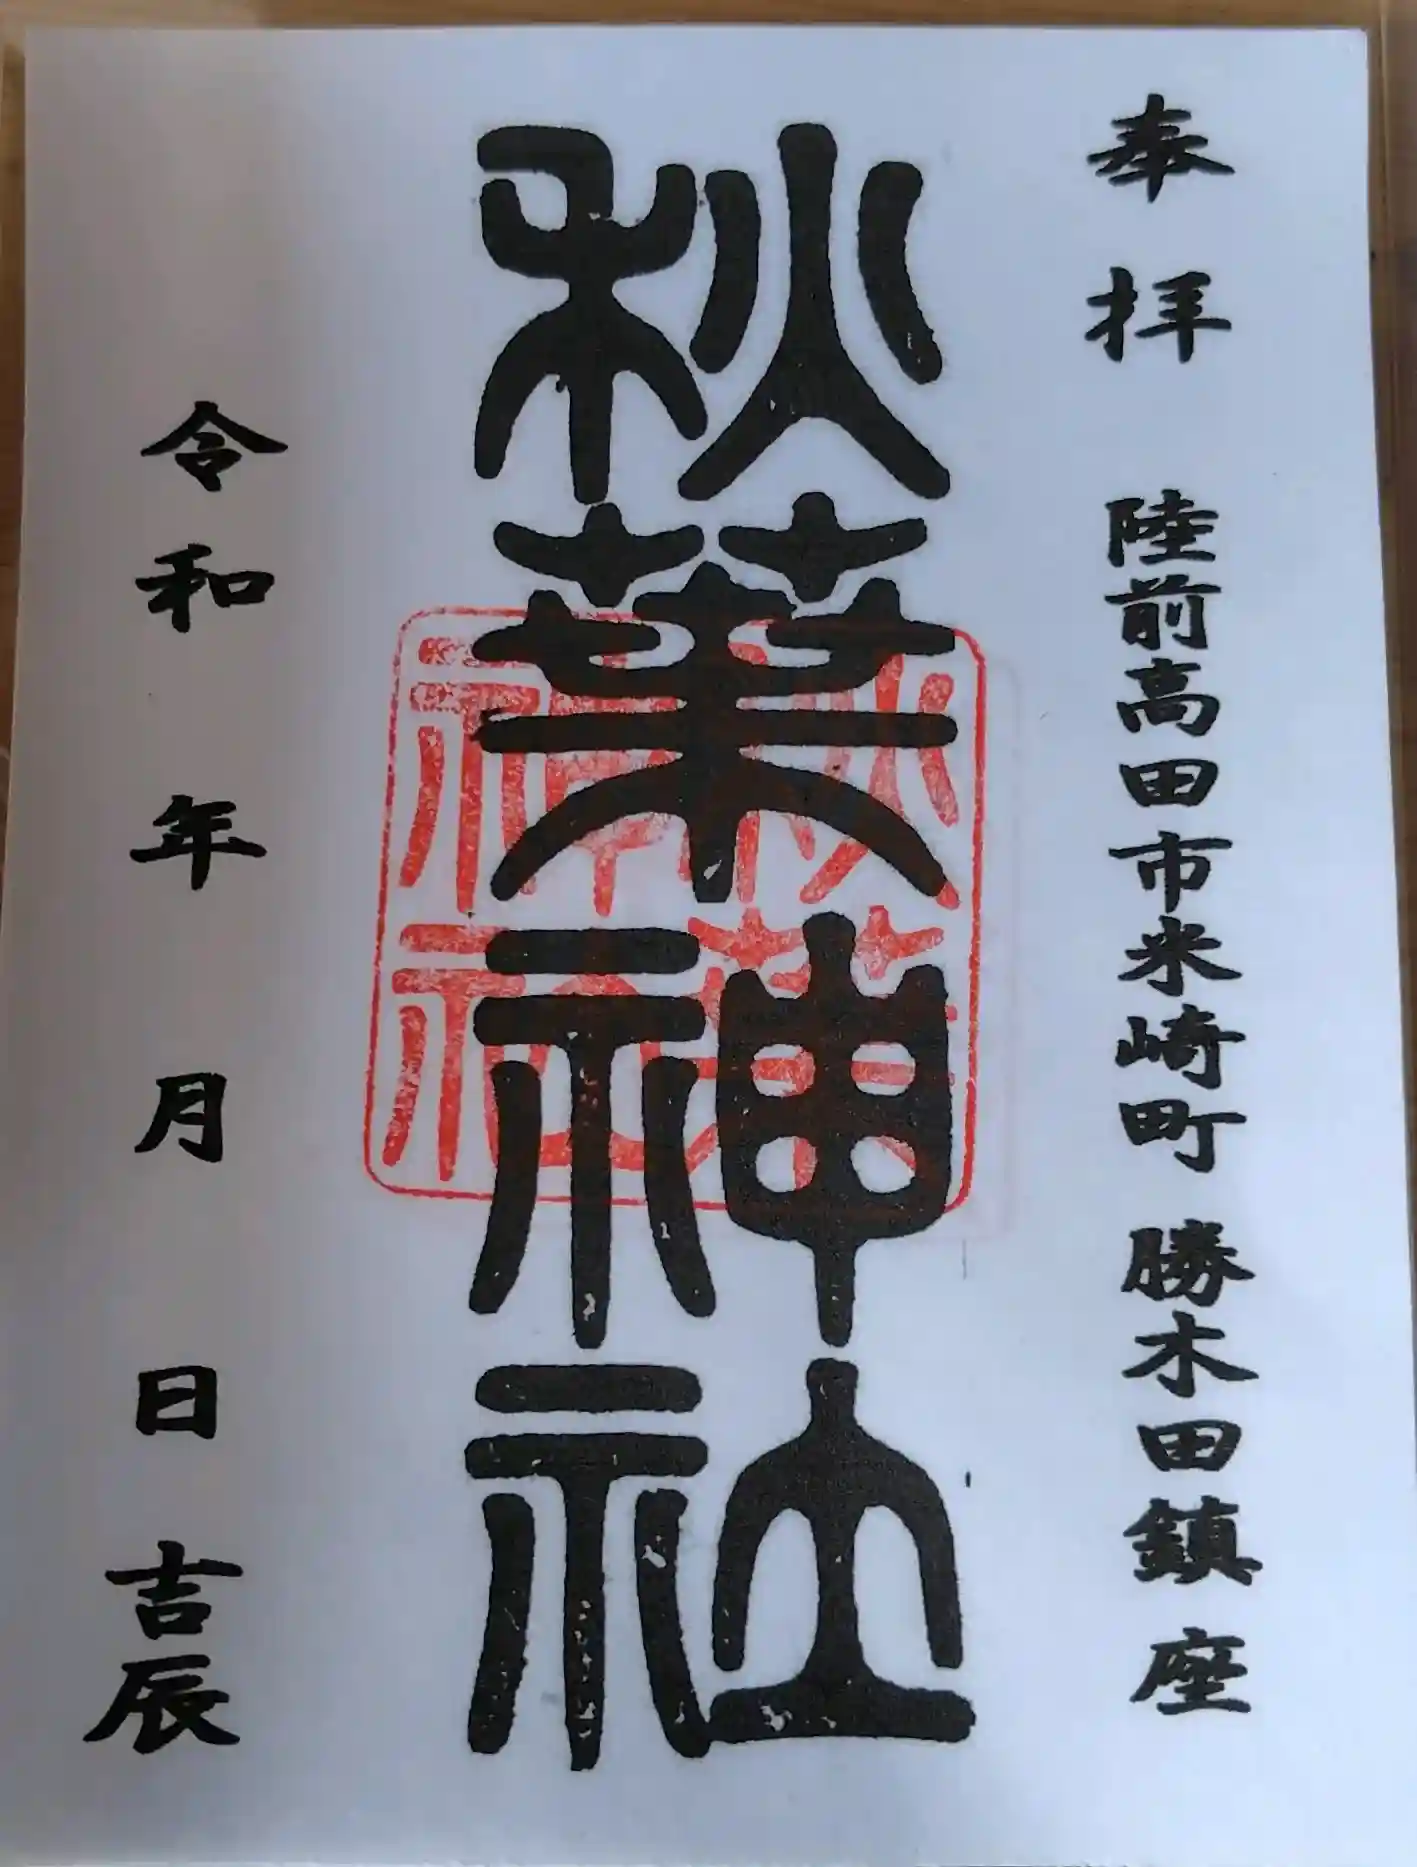 奉拝 陸前高田市米崎町 勝木田鎮座
秋葉神社
秋葉神社
令和 年 月 日 吉辰